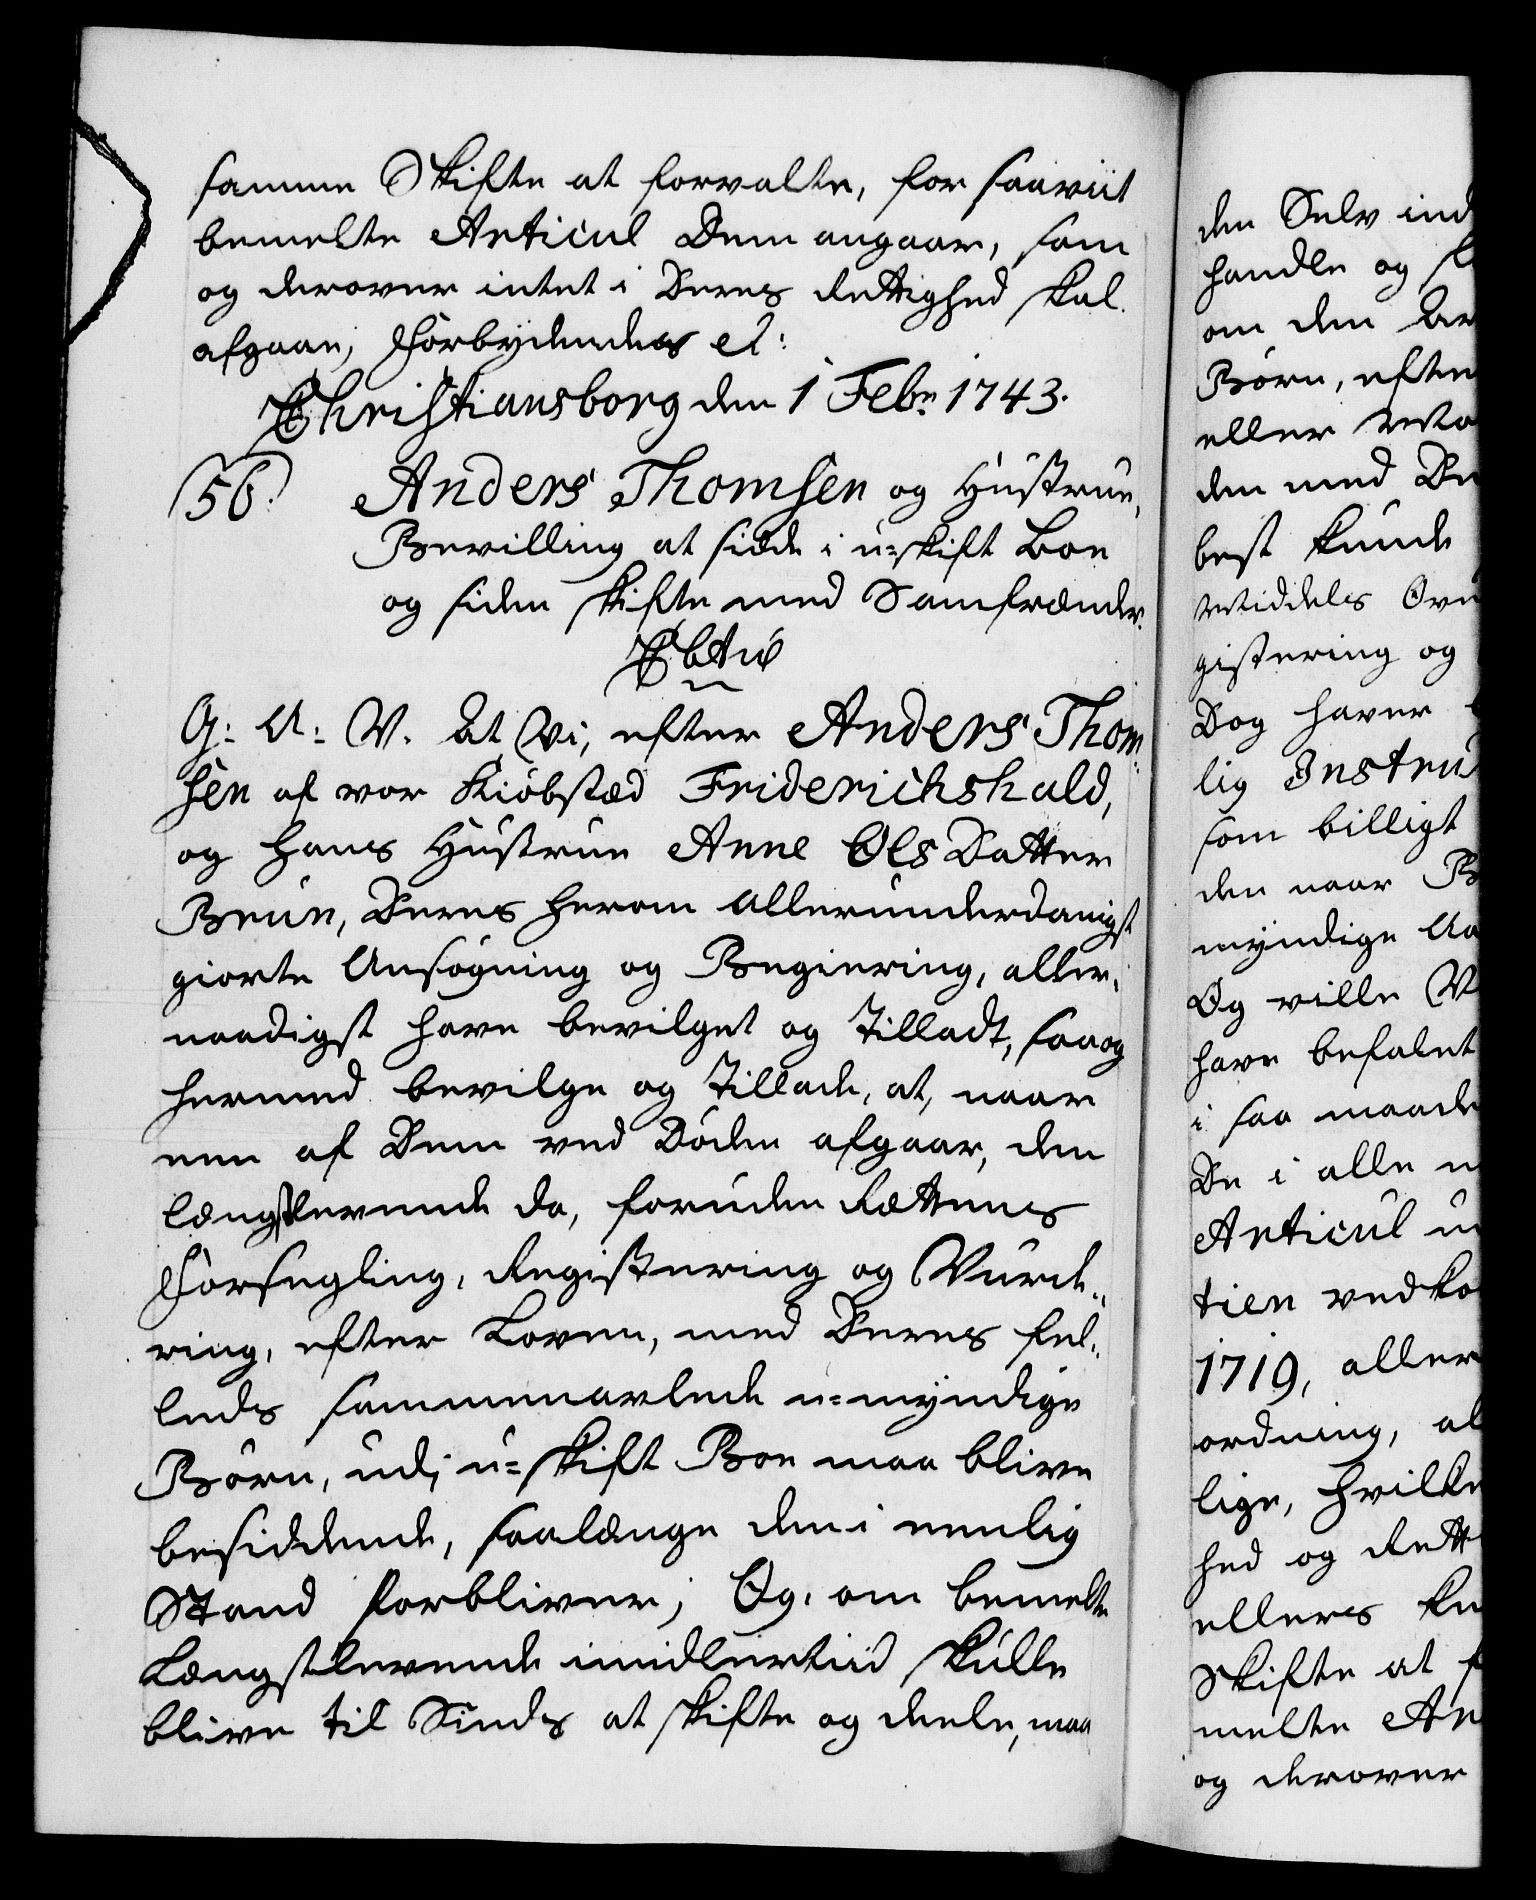 samme Skifte at forvalte, for saaviit
bemelte Articul Dem angaar, som
og derover intet i Deres Rettighed skal
afgaae; Forbydendes et:
Christiansborg den 1 Febr: 1743.
56. Anders Thomsen og Hustrue,
Bevilling at sidde i u-skift Boe
og siden skifte med Samfrænder.
G: A: V. At Vi, efter Anders Thom-
sen af vor Kiøbstæd Friderichshald,
og hans Hustrue Anne Ols Datter
Bruun, Deres herom allerunderdanigst
giorte Ansøgning og Begiering, aller-
naadigst have bevilget og Tilladt, saa og
hermed bevilge og Tillade, at, naar
een af Dem ved Døden afgaar, den
længstlevende da, foruden Rettens
Forsegling, Registering og Vurde-
ring, efter Loven, med Deres fel-
leds sammenavlede u-myndige
Børn, udj u-skift Boe maa blive
besiddende, saalænge den i eenlig
Stand forbliver; Og, om bemelte
Længstlevende imidlertiid skulle
blive til Sinds at skifte og deele, maa
den Selv ind
handle og
om den
Børn, efter
eller
den med
best kunde
Middels
gistering og
Dog haver
lig Instru
som billigt
den naar
myndige
Og ville V
have befalet
i saa maade
De i alle
Articul
tien vedko
1719, aller
ordning, al
lige, hvilke
hed og Rett
ellers
Skifte at f
melte Ar
og derover